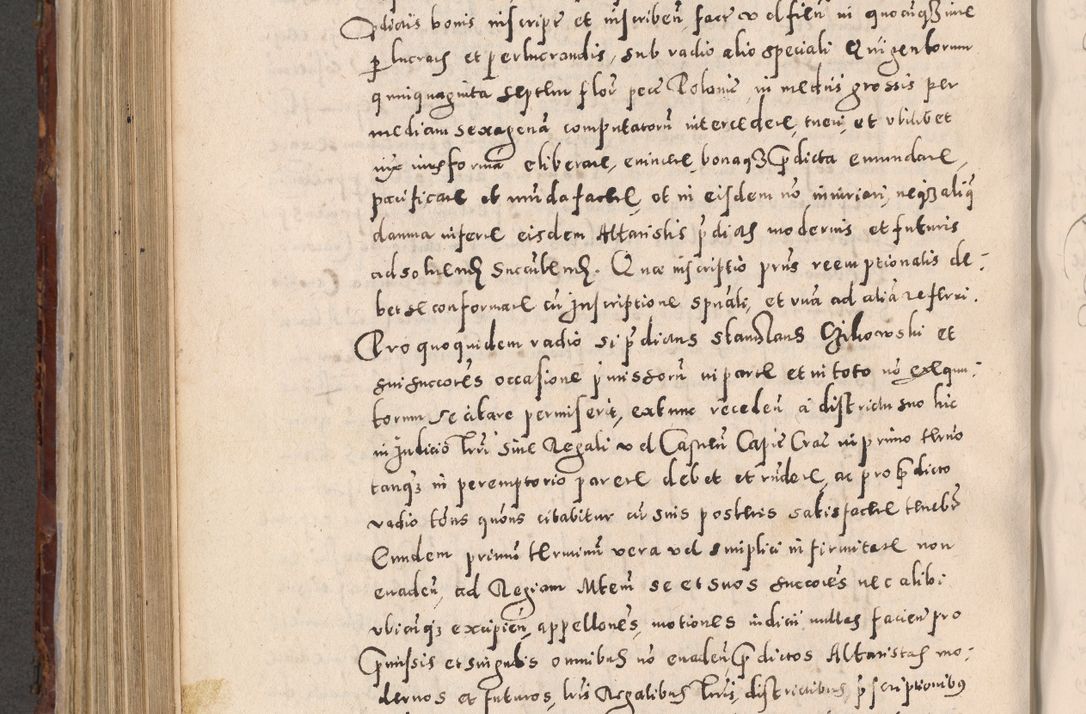 p̃dictis bonis inscripsit et inscribeñ facit vel fieri in quocunq3 iure
ꝑ lucrat̃ et ꝑerlucrandis, sub vadio alio speciali Quingentorum
quinquaginta septem flor̃ pecẽ Polonice in mediis grossis per
mediam sexagenã computatorũ intercedere, tueri, et vbilibet
iuxta iuris formã eliberare, evincere, bonaq3 p̃dicta emundare,
pacificare et munda facere, et in eisdem nõ iniuriari, neq3 aliq̃
damna inferre eisdem Altaristis p̃dictis modernis et futuris
ad solvend̃ succubend̃. Quae inscriptio prñs reemptionalis de:
bet se conformare cũ Inscriptione spũali, et vna ad aliã referri.
Pro quo quidem vadio si p̃dictus Stanislaus Czikowski et
sui succorẽs occasione p̃missorũ in parte et in toto nõ exequu:
torum se citare permiserit, extunc receden̄ a districtu suo hic
in Judicio Trrĩ sive Regali vel Castreñ Capit̃ Crac̃ in primo termo
tanq3 in peremptorio parere debet et rñdere, ac pro p̃dicto
vadio totĩes quotĩes citabitur cũ suis posteris satisfacere tenebit̃
Eundem primũ terminũ vera vel simplici infirmitate non
evaden̄, ad Regiam Mtem̃ se et suos succores̃ nec alibi
vbicunq3 excipien̄, appellones̃, motiones indicii nullas facien̄ pro
p̃missis et singulis omnibus nõ evaden̄ p̃dictos Altaristas mo:
dernos et futuros, lr̃is Regalibus Trrĩs, districtibus, p̃scriptionibus